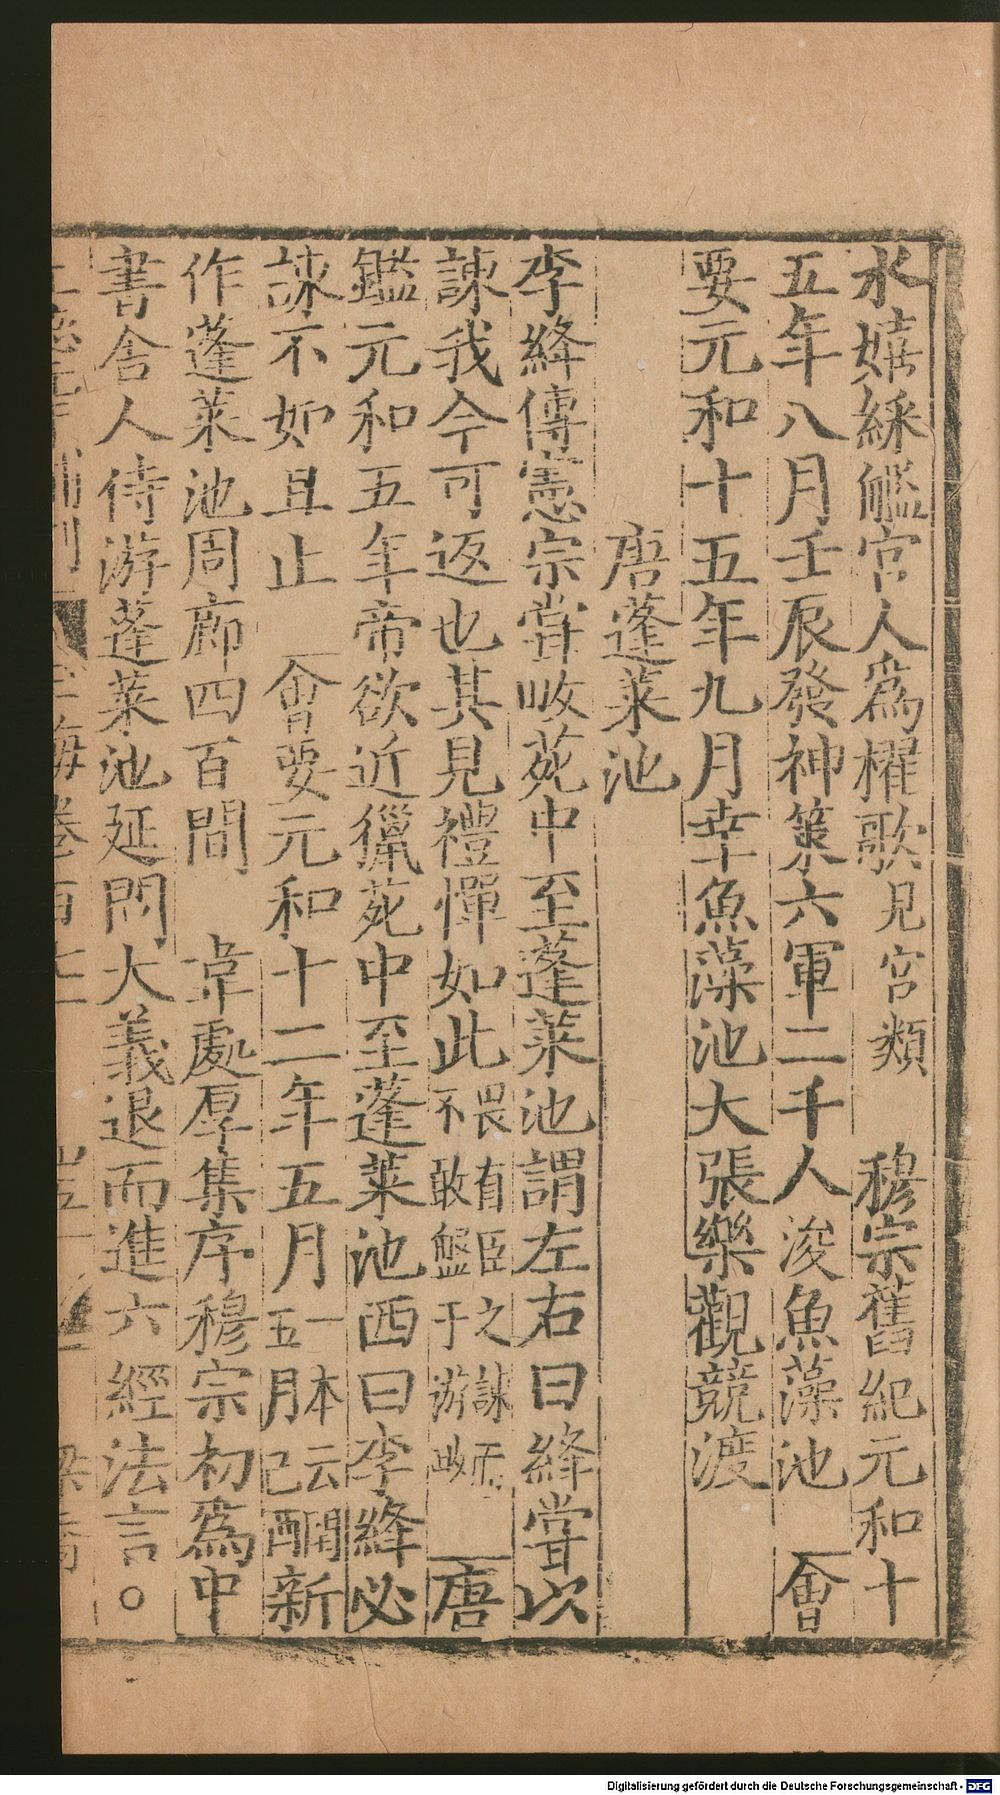 水嬉綵艦宮人爲櫂歌見宮類　穆宗舊紀元和十
五年八月壬辰發神策六軍二千人浚魚藻池　會
要元和十五年九月幸魚藻池大張樂觀競渡
唐蓬萊池
李絳傳憲宗甞畋苑中至蓬萊池謂左右曰絳甞以
諫我今可返也其見禮憚如此畏有臣之諫而不敢盤于游畋　唐
鑑元和五年帝欲近獵苑中至蓬萊池西曰李絳必
諫不如且止　會要元和十二年五月一本云閏五月己酉新
作蓬萊池周廊四百間　韋處厚集序穆宗初爲中
書舍人侍游蓬萊池延問大義退而進六經法言。
補刊　玉海卷百七十一
Digitalisierung gefördert durch die Deutsche Forschungsgemeinschaft - DFG